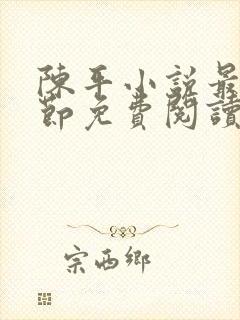 陳平小說最
節免費閱讀
宗西鄉